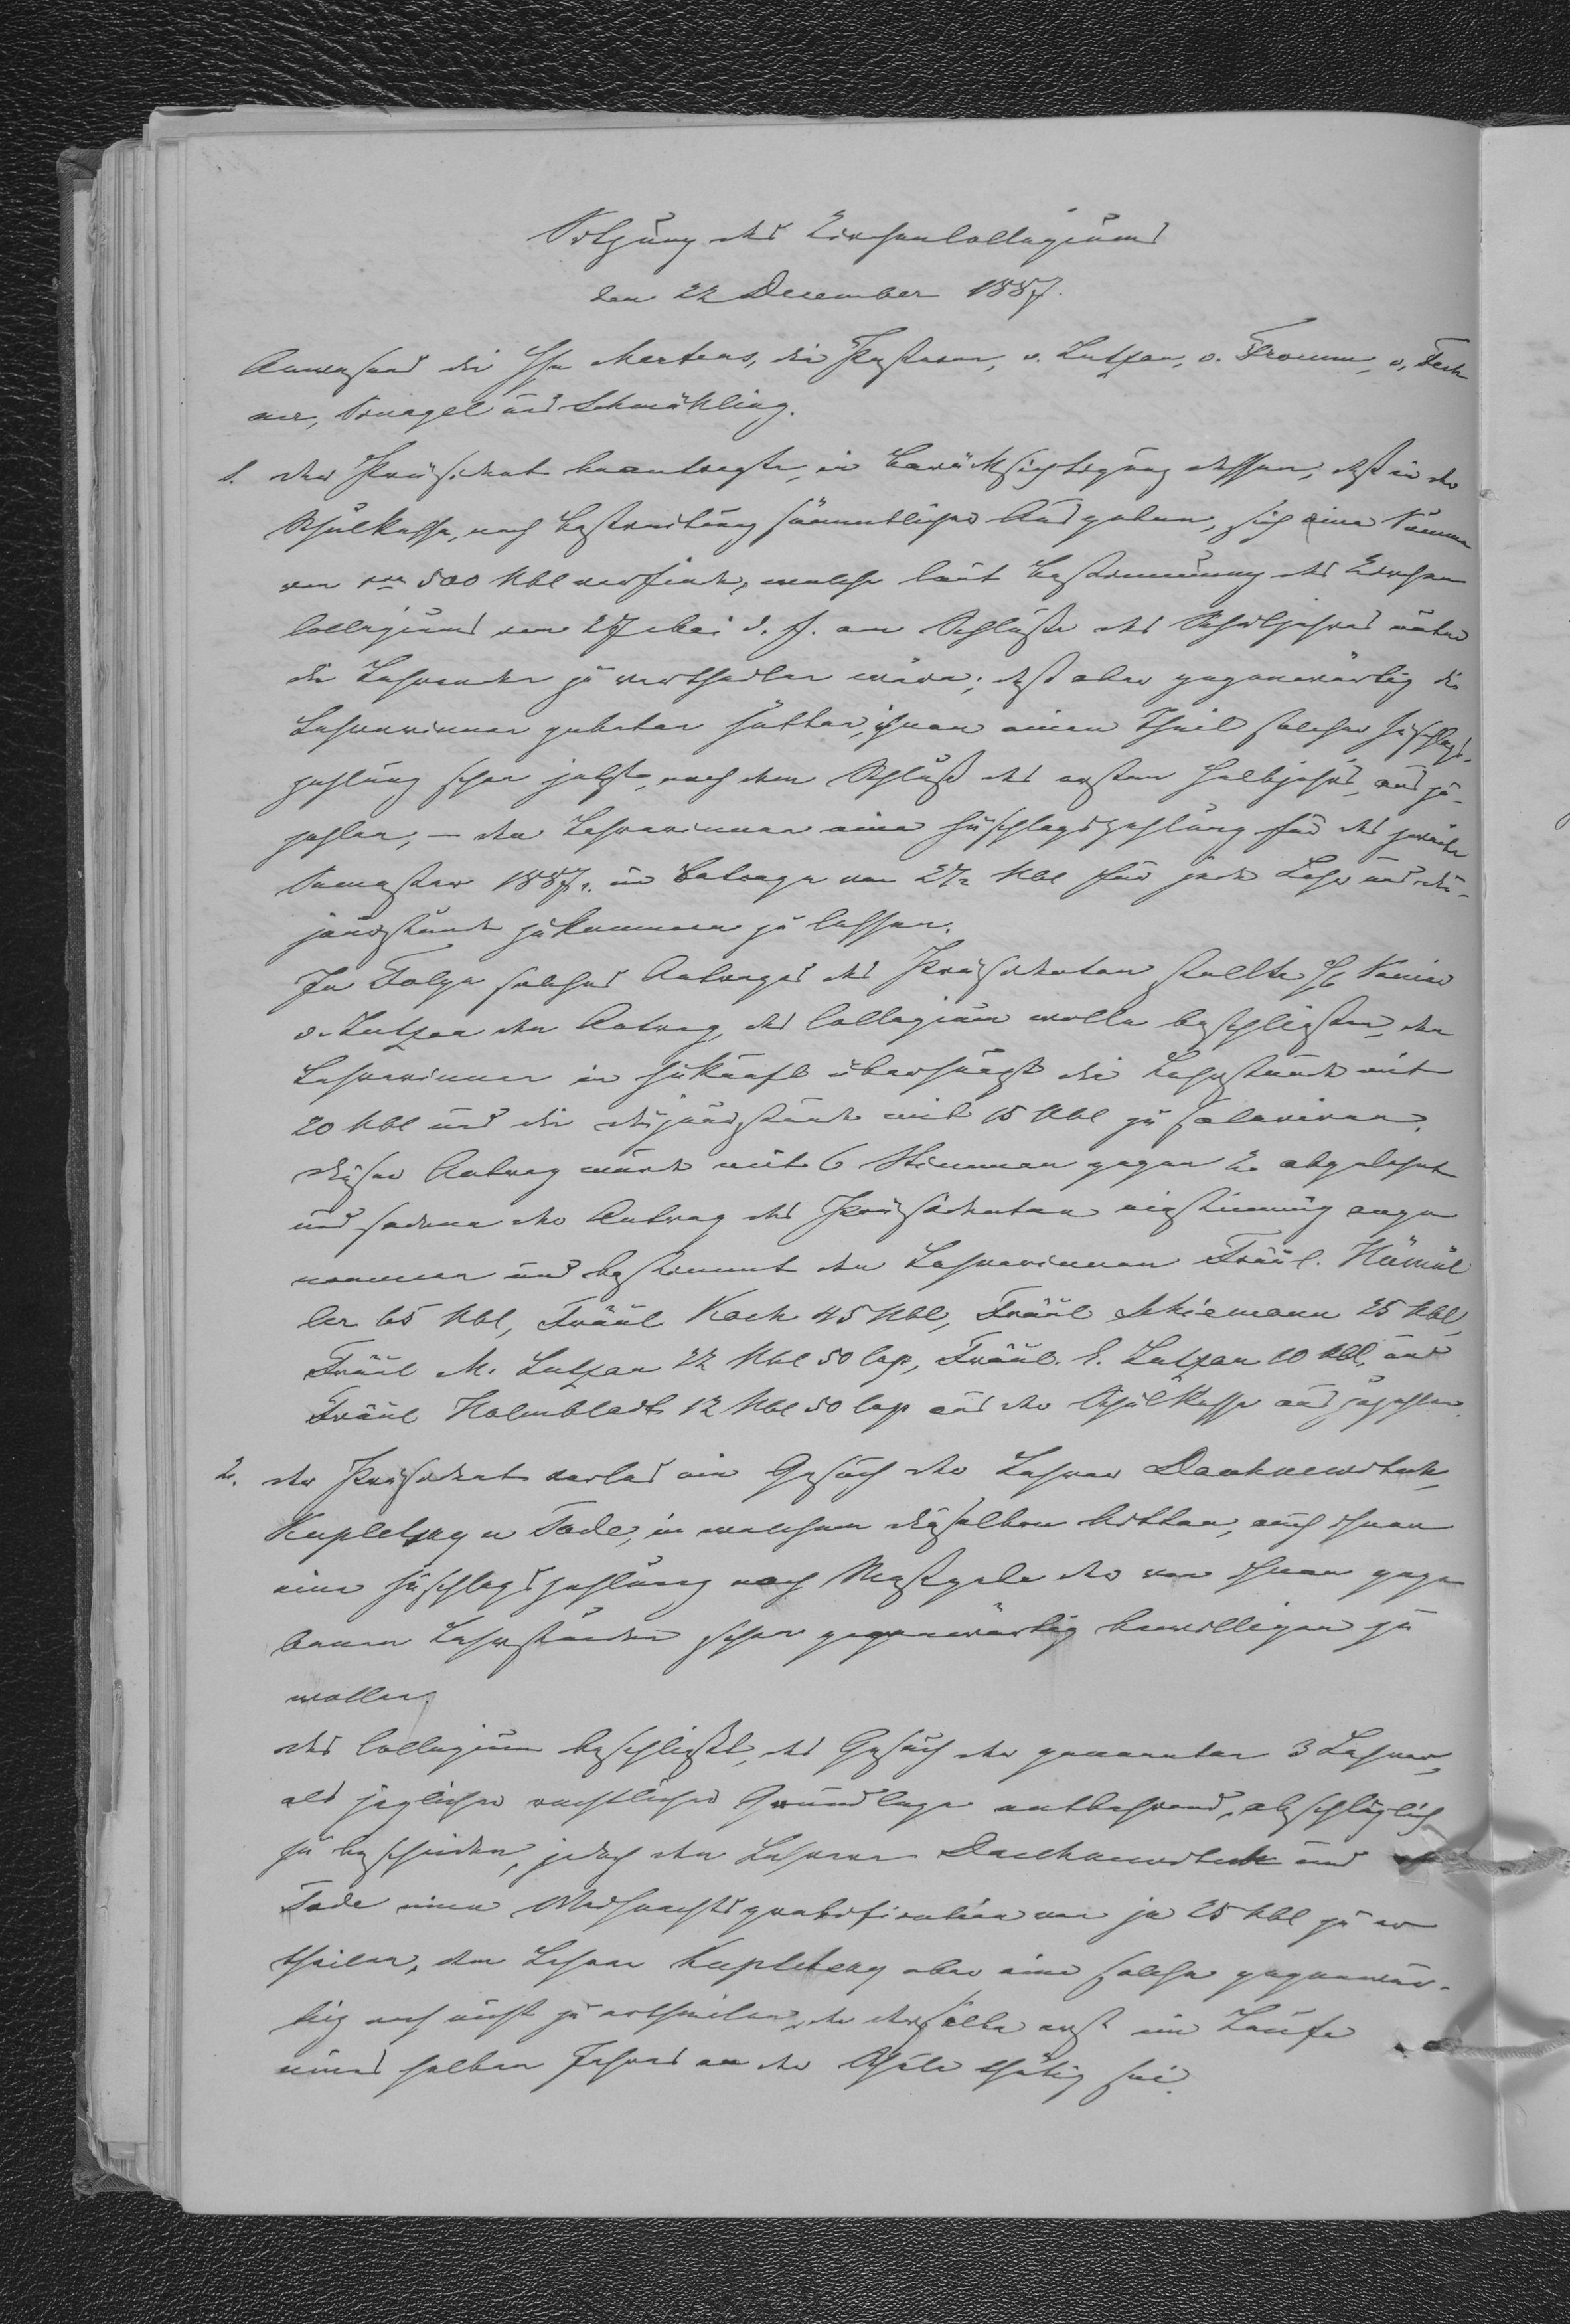 Sitzung des Kirchencollegiums
den 22 December 1887.
Anwesend die Hn Mertens, die Pastoren, v. Lutzau, v. Fromm, v. Fech
ner, Kruagel und Schmähling.
1. der Präsident beantragte, in Berücksichtigung dessen, daß in der
Schulkasse, nach Bestreitung sämmtlicher Ausgaben, sich eine Summe
von 500 Rbl vorfinde, welche laut Bestimmung des Kirchen
collegiums vom 27 Mai d. J. am Schlusse des Schuljahres unter
die Lehrenden zu vertheilen wäre; daß aber gegenwärtig die
Lehrerinnen gebeten hätten, ihnen einen Theil solcher Zuschlags-
zahlung schon jetzt, nach dem Schluß des ersten Halbjahrs, auszu-
zahlen, – den Lehrerinnen eine Zuschlagszahlung für das zweite
Semester 1887, im Betrage von 2½ Rbl für jede Lehr und du-
jourstunde zukommen zu lassen.
In Folge solches Antrages des Präsidenten stellte H.
v. Lutzau den Antrag, das Collegium wolle beschließen, den
Lehrerinnen in Zukunft überhaupt die Lehrstunde mit
20 Rbl und die dujourstunde mit 15 Rbl zu salariren.
dieser Antrag wurde mit 6 Stimmen gegen 2 abgelehnt
und sodann der Antrag des Präsidenten einstimmig ange
nommen und bestimmt den Lehrerinnen Fräul. Hümül
ler 65 Rbl, Fräul Koch 45 Rbl, Fräul Schiemann 25 Rbl,
Fräul M. Lutzau 22 Rbl 50 Cop, Fräul. E. Lutzau 10 Rbl, und
Fräul Holmbladt 12 Rbl 50 Cop aus der Schulkasse auszuzahlen.
2. der Präsident verlas ein Gesuch der Lehrer
Kupletzky u Tode, in welchem dieselben bitten, auch ihnen
eine Zuschlagszahlung nach Maßgabe der von ihnen gege
benen Lehrstunden schon gegenwärtig bewilligen zu
wollen.
das Collegium beschließt, das Gesuch der genannten 3 Lehrer,
als jeglicher rechtlicher Grundlage entbehrend, abschläglich
zu bescheiden, jedoch den Lehrern und
Tode eine Weihnachtsgratification von je 25 Rbl zu er
theilen, dem Lehrer Kupletzky aber eine solche gegenwär-
tig noch nicht zu ertheilen, da derselbe erst im Laufe
eines halben Jahres an der Schule thätig sei.